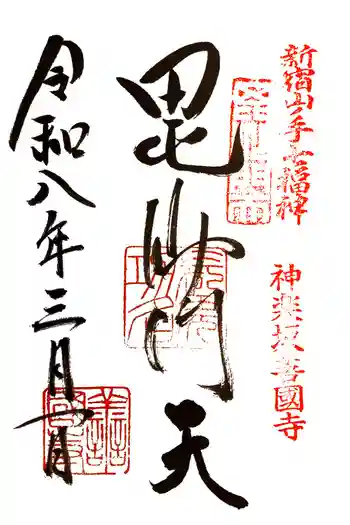 新宿山ノ手七福神
神楽坂善國寺
毘沙門天
令和八年三月一日